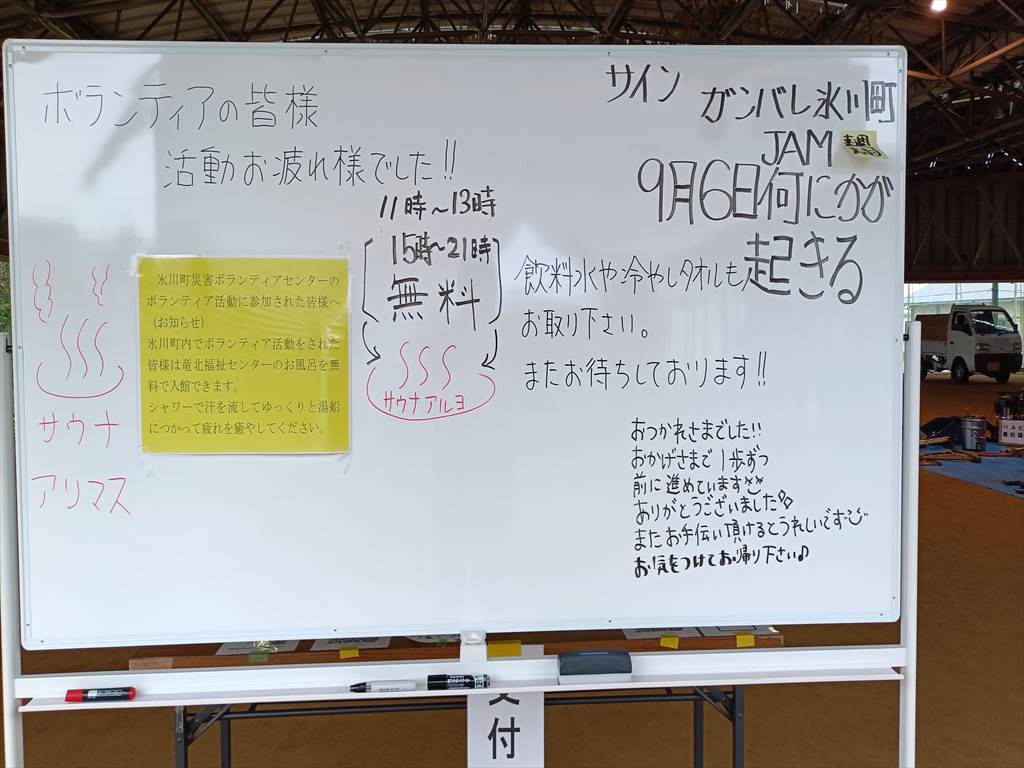 ボランティアの皆様
活動お疲れ様でした!!
サイン
ガンバレ氷川町
JAM
9月6日何にかが
起きる
11時～13時
15時～21時
無料
サウナアルヨ
サウナ
アリマス
氷川町災害ボランティアセンターの
ボランティア活動に参加された皆様へ
（お知らせ）
氷川町内でボランティア活動をされた
皆様は竜北福祉センターのお風呂を無
料で入館できます。
シャワーで汗を流してゆっくりと湯船
につかって疲れを癒やしてください。
飲料水や冷やしタオルも
お取り下さい。
またお待ちしております!!
おつかれさまでした!!
おかげさまで1歩ずつ
前に進めています
ありがとうございました
またお手伝い頂けるとうれしいです
お気をつけてお帰り下さい♪
付